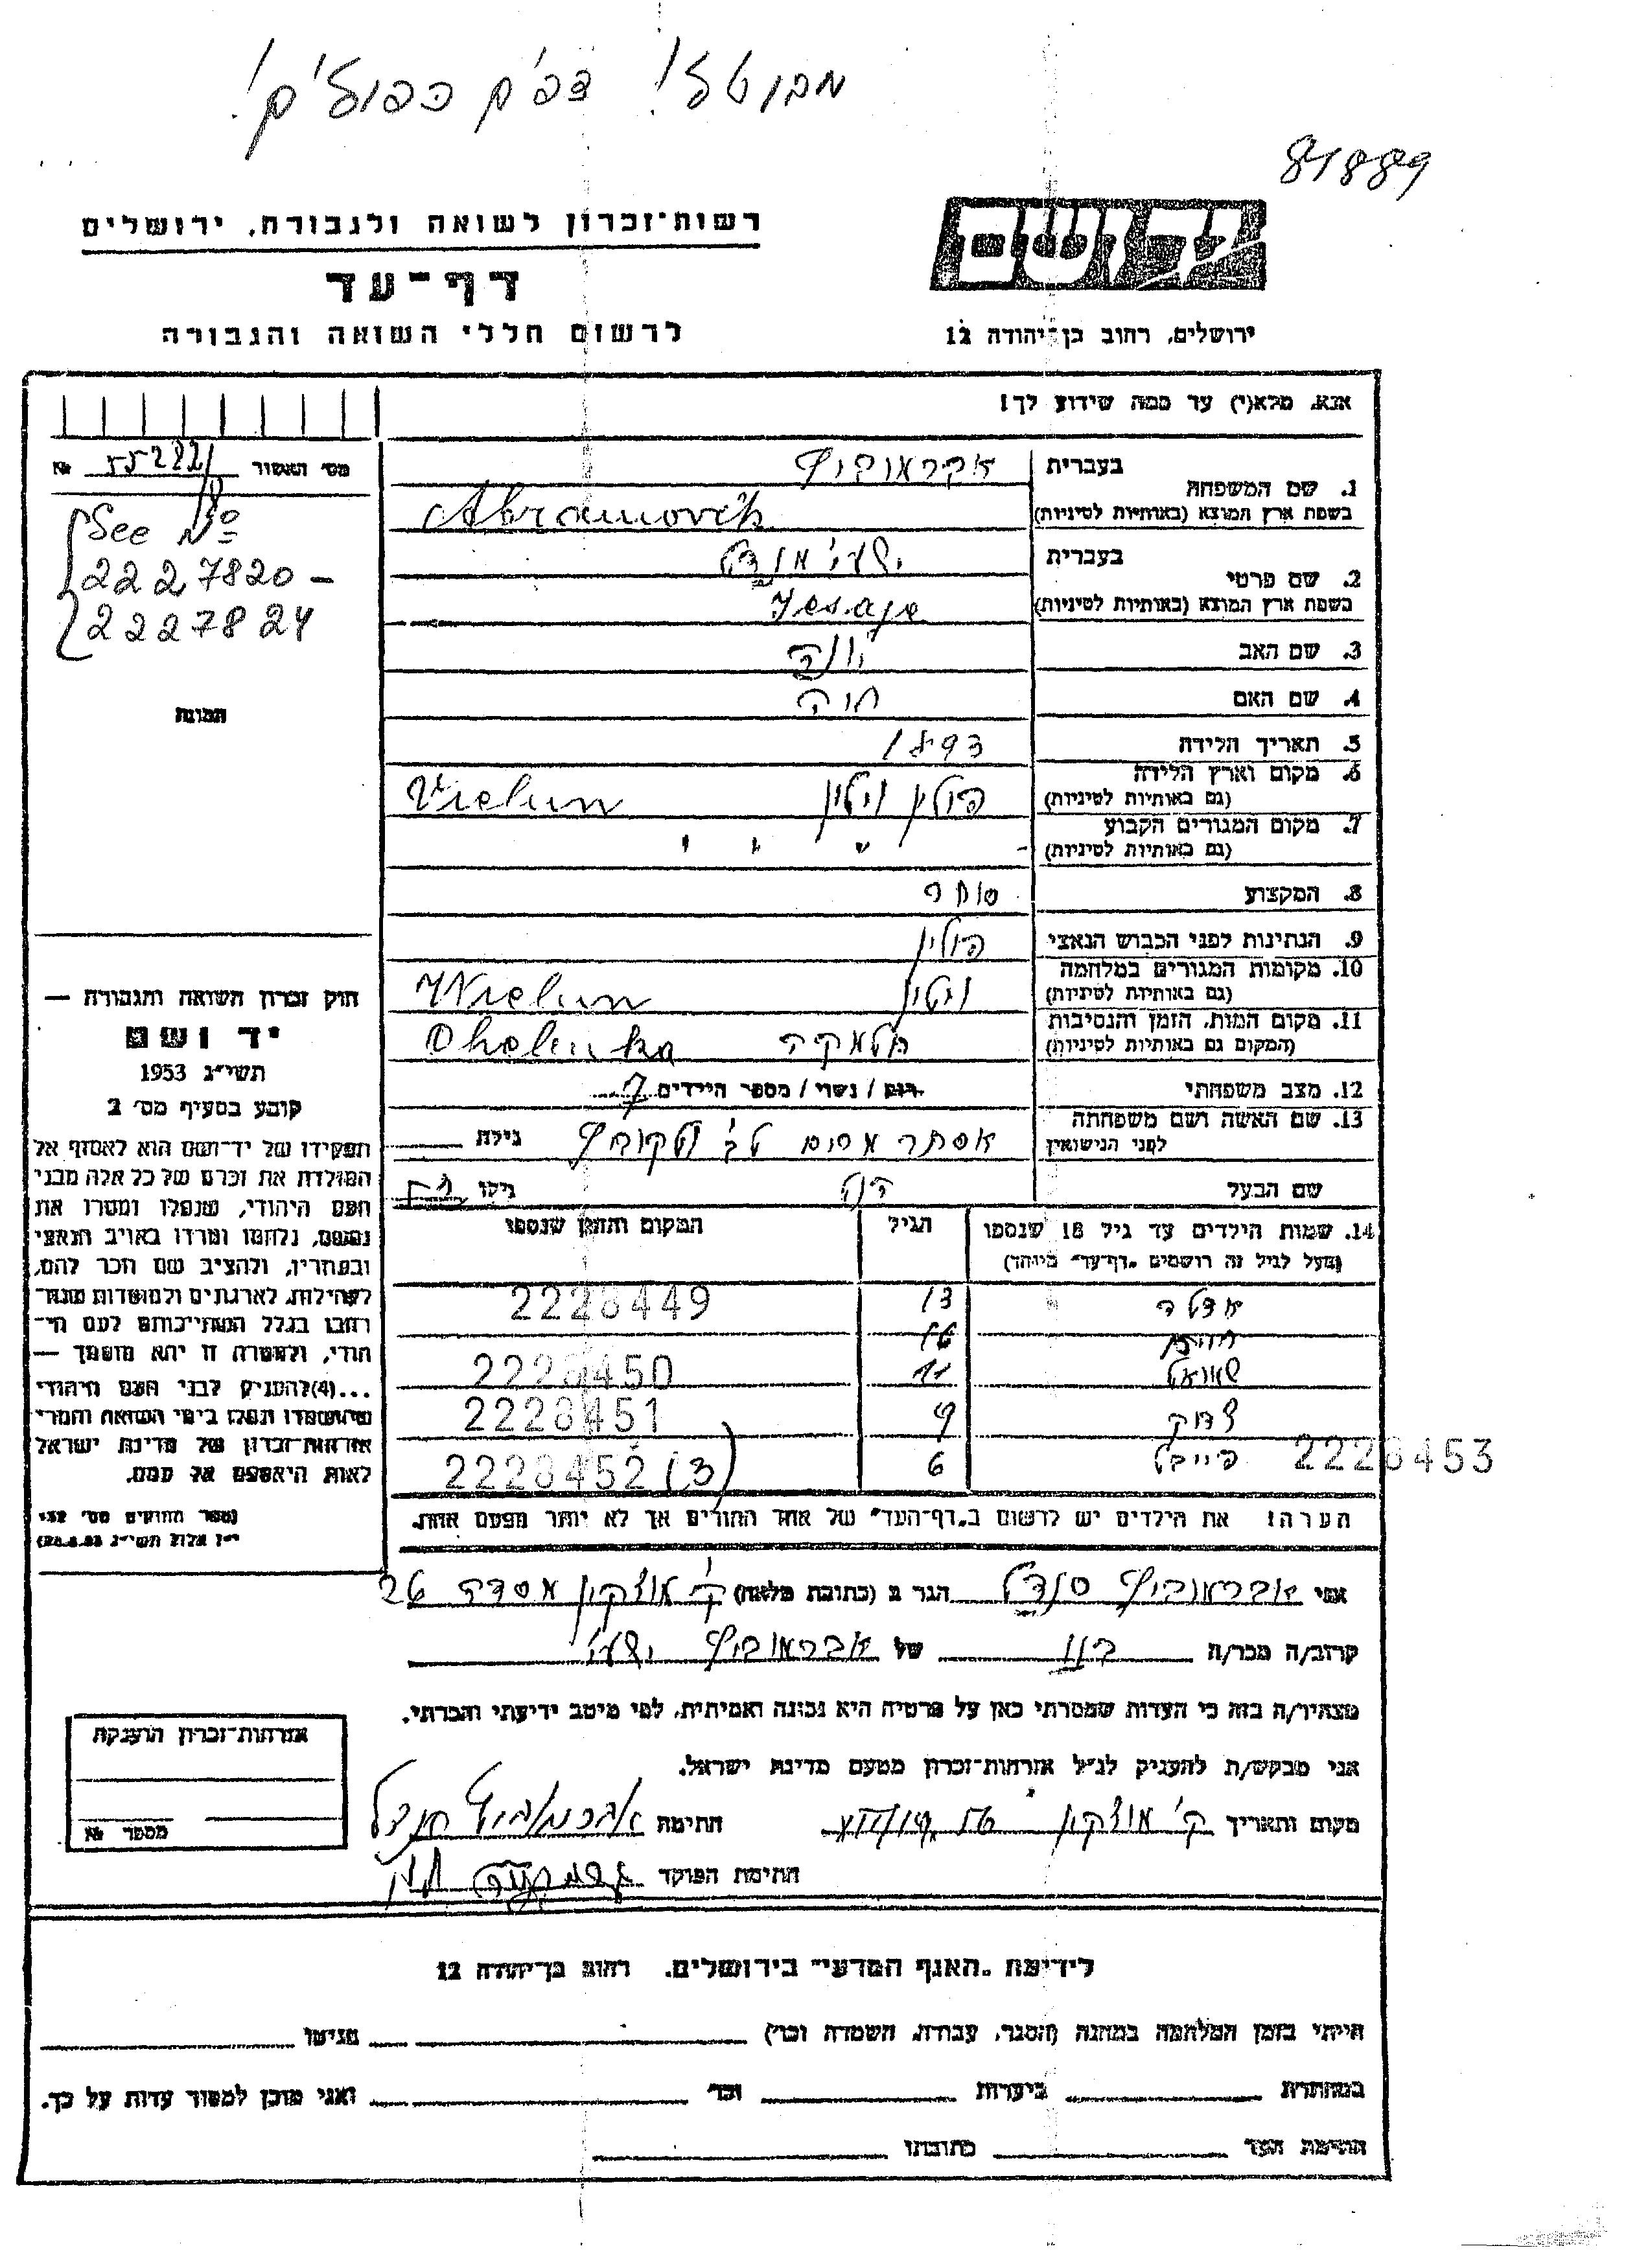 מבוטל! דפים כפולים!
81889
יד ושם
ירושלים, רחוב בן־יהודה 12
רשות־זכרון לשואה ולגבורה, ירושלים
דף־עד
לרשום חללי השואה והגבורה
אנא, מלא(י) עד כמה שידוע לך!
מס' האשור 55282 №
See №
2227820 –
2227824
התמונה
1. שם המשפחה בעברית אברמוביץ
בשפת ארץ המוצא (באותיות לטיניות) Abramovich
2. שם פרטי בעברית ישעי' מנדל
בשפת ארץ המוצא (באותיות לטיניות) Jesaje
3. שם האב יונה
4. שם האם חיה
5. תאריך הלידה 1893
6. מקום וארץ הלידה (גם באותיות לטיניות) פולין וילון Vielun
7. מקום המגורים הקבוע (גם באותיות לטיניות) " " " "
8. המקצוע סוחר
9. הנתינות לפני הכבוש הנאצי פולין
10. מקומות המגורים במלחמה (גם באותיות לטיניות) וילון Wielun
11. מקום המות, הזמן והנסיבות (המקום גם באותיות לטיניות)
12. מצב משפחתי רווק / נשוי / מספר הילדים 7
13. שם האשה ושם משפחתה לפני הנישואין אסתר לב' גילה
שם הבעל גילו
14. שמות הילדים עד גיל 18 שנספו הגיל המקום והזמן שנספו
(מעל לגיל זה רושמים "דף־עד" מיוחד)
13 2228449
16
שמואל 11 2228450
9 2228451
פייבל 6 2228452 (3) 2228453
הערה! את הילדים יש לרשום ב"דף־העד" של אחד ההורים אך לא יותר מפעם אחת.
חוק זכרון השואה והגבורה —
יד ושם
תשי״ג 1953
קובע בסעיף מס' 2
תפקידו של יד־ושם הוא לאסוף אל
המולדת את זכרם של כל אלה מבני
העם היהודי, שנפלו ומסרו את
נפשם, נלחמו ומרדו באויב הנאצי
ובעוזריו, ולהציב שם וזכר להם,
לקהילות, לארגונים ולמוסדות שנח־
רבו בגלל השתייכותם לעם הי־
הודי, ולמטרה זו יהא מוסמך —
...(4) להעניק לבני העם היהודי
שהושמדו ונפלו בימי השואה והמרי
אזרחות־זכרון של מדינת ישראל
לאות היאספם אל עמם.
אני אברמוביץ סנדל הגר ב (כתובת מלאה) ק' מוצקין מסדה 26
קרוב/ה מכר/ה בנו של אברמוביץ ישעי'
מצהיר/ה בזה כי העדות שמסרתי כאן על פרטיה היא נכונה ואמיתית, לפי מיטב ידיעתי והכרתי.
אני מבקש/ת להעניק לנ״ל אזרחות־זכרון מטעם מדינת ישראל.
מקום ותאריך ק' מוצקין חתימה אברמוביץ סנדל
חתימת הפוקד
אזרחות־זכרון הוענקה
מספר №
לידיעת "האגף המדעי" בירושלים, רחוב בן־יהודה 12
הייתי בזמן המלחמה במחנה (הסגר, עבודה, השמדה וכו') בגיטו
במחתרת ביערות וכו' ואני מוכן למסור עדות על כך.
חתימת העד כתובתו